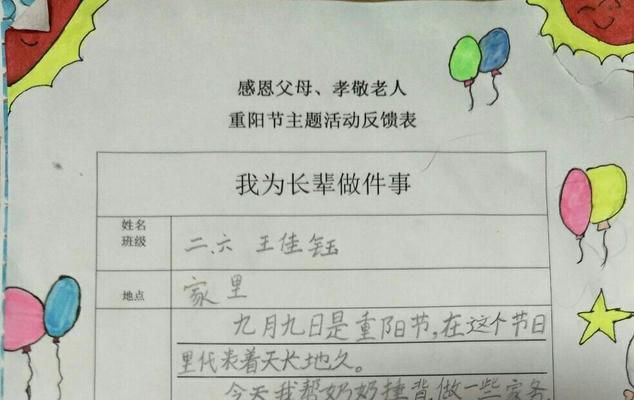 感恩父母、孝敬老人
重阳节主题活动反馈表
我为长辈做件事
姓名
班级
二.六 王佳钰
地点
家里
九月九日是重阳节,在这个节日
里代表着天长地久。
今天我帮奶奶捶背,做一些家务,